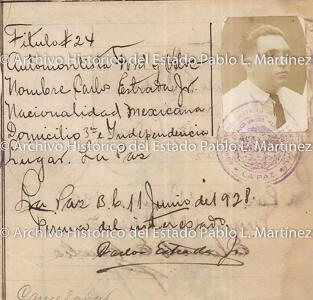 Título #24
Automovilista Ford y
Nombre Carlos Estrada Jr.
Nacionalidad Mexicana
Domicilio 3ra e Independencia
Lugar. La Paz
La Paz B.C. 11 Junio de 1928.
Firma del interesado
Carlos Estrada Jr
© Archivo Histórico del Estado Pablo L. Martínez
© Archivo Histórico del Estado Pablo L. Martínez
© Archivo Histórico del Estado Pablo L. Martínez
LA PAZ